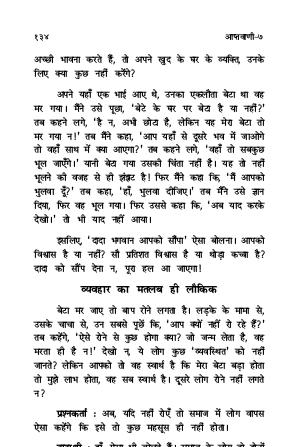 १३४ आप्तवाणी-७
अच्छी भावना करते हैं, तो अपने खुद के घर के व्यक्ति, उनके
लिए क्या कुछ नहीं करेंगे?
अपने यहाँ एक भाई आए थे, उनका एकलौता बेटा था वह
मर गया। मैंने उसे पूछा, 'बेटे के घर पर बेटा है या नहीं?'
तब कहने लगे, 'है न, अभी छोटा है, लेकिन यह मेरा बेटा तो
मर गया न!' तब मैंने कहा, 'आप यहाँ से दूसरे भव में जाओगे
तो वहाँ साथ में क्या आएगा?' तब कहने लगे, 'वहाँ तो सबकुछ
भूल जाएँगे।' यानी बेटा गया उसकी चिंता नहीं है। यह तो नहीं
भूलने की वजह से ही झंझट है! फिर मैंने कहा कि, 'मैं आपको
भुलवा दूँ?' तब कहा, 'हाँ, भुलवा दीजिए।' तब मैंने उसे ज्ञान
दिया, फिर वह भूल गया। फिर उससे कहा कि, 'अब याद करके
देखो।' तो भी याद नहीं आया।
इसलिए, 'दादा भगवान आपको सौंपा' ऐसा बोलना। आपको
विश्वास है या नहीं? सौ प्रतिशत विश्वास है या थोड़ा कच्चा है?
दादा को सौंप देना न, पूरा हल आ जाएगा!
व्यवहार का मतलब ही लौकिक
बेटा मर जाए तो बाप रोने लगता है। लड़के के मामा से,
उसके चाचा से, उन सबसे पूछें कि, 'आप क्यों नहीं रो रहे हैं?'
तब कहेंगे, 'ऐसे रोने से कुछ होगा क्या? जो जन्म लेता है, वह
मरता ही है न!' देखो न, ये लोग कुछ 'व्यवस्थित' को नहीं
जानते? लेकिन आपको तो वह स्वार्थ है कि मेरा बेटा बड़ा होता
तो मुझे लाभ होता, वह सब स्वार्थ है। दूसरे लोग रोने नहीं लगते
न?
प्रश्नकर्ता : अब, यदि नहीं रोएँ तो समाज में लोग वापस
ऐसा कहेंगे कि इसे तो कुछ महसूस ही नहीं होता।